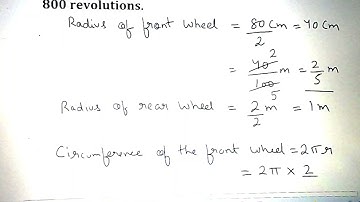 800 revolutions.
Radius of front wheel = 80 cm = 40 cm
2
= 40 2 m = 2 m
100 5 5
Radius of rear wheel = 2 m = 1 m
2
Circumference of the front wheel = 2πr
= 2π × 2